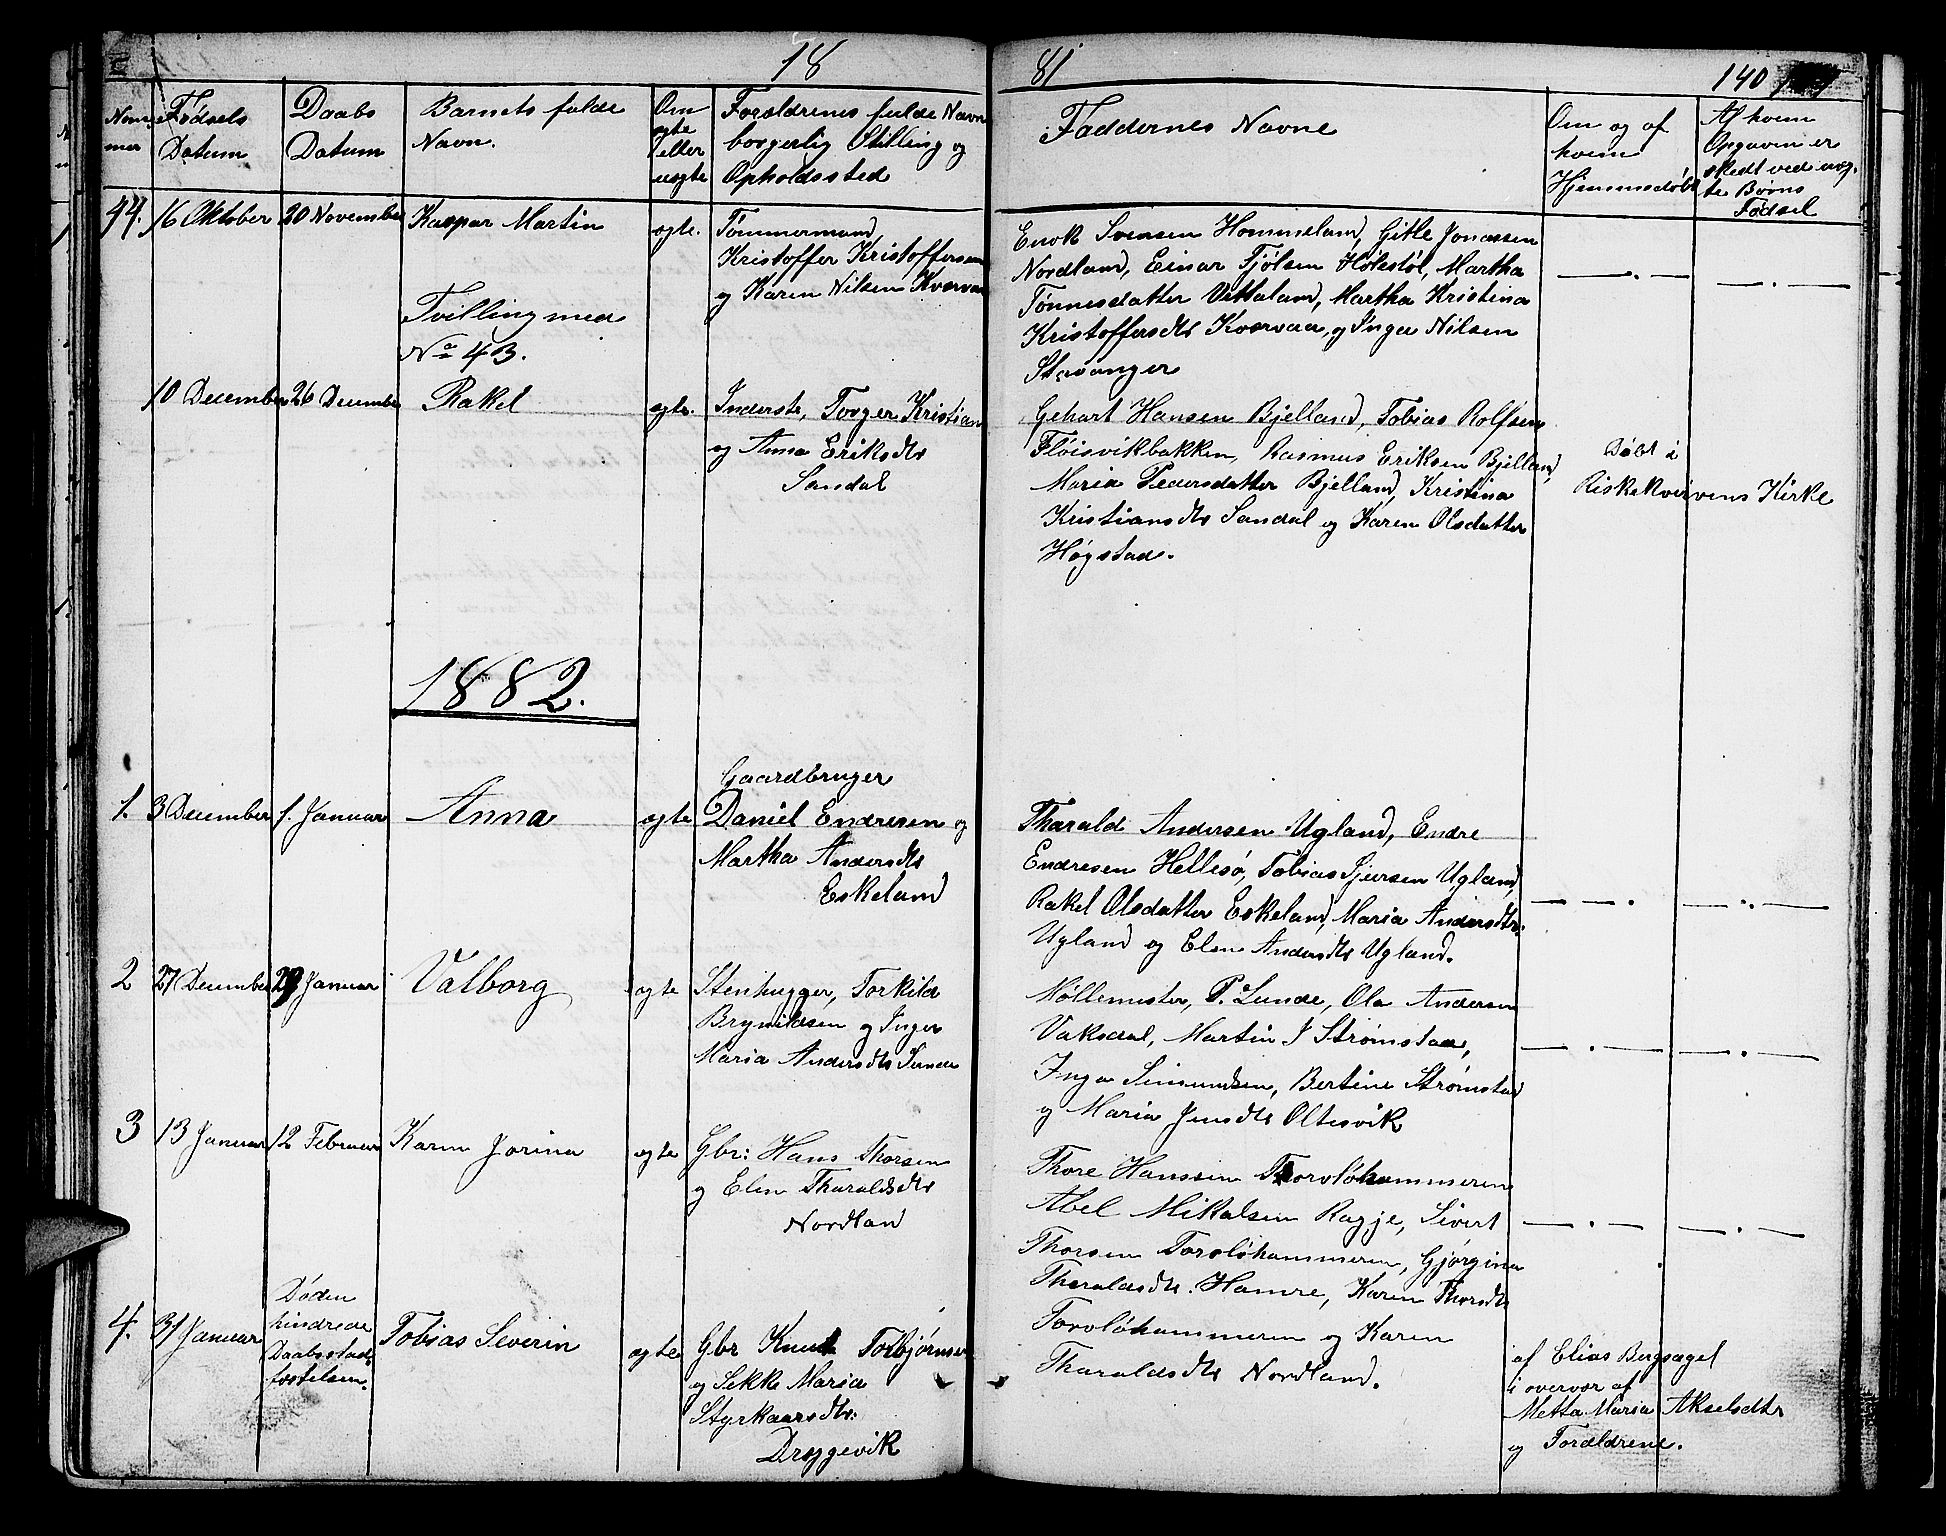 18
81
140
Num-
mer
Fødsels
Datum
Daabs
Datum
Barnets fulde
Navn.
Om
ægte
eller
uægte
Forældrenes fulde Navn
borgerlig Stilling og
Opholdssted
Faddernes Navne
Om og af
hvem
Hjemmedøbt
Af hvem
Opgaven er
skedt ved uæg-
te Børns
Fødsel
44. 16 Oktober 20 November Kaspar Martin ægte. Tømmermand,
Kristoffer Kristoffersen
og Karen Nilsen Kvævan
Tvilling med
No 43.
Enok Svensen Hommeland, Gitle Jonassen
Nordland, Einar Fjølsen Holestøl, Martha
Tønnesdatter Vetteland, Martha Kristina
Kristoffersdtr Kvævaa, og Inga Nilsen
Stavanger
10 December 26 December Rakel ægte. Inderste, Torger Kristian
og Anna Eriksdtr
Sandal
Gehart Hansen Bjelland, Tobias Rolfsen
Fløisvikbakken, Rasmus Eriksen Bjelland,
Maria Pedersdatter Bjelland, Kristina
Kristiansdtr Sandal og Karen Olsdatter
Høgstad.
Døbt i
Riskekvervens Kirke
1882.
1. 3 December 1. Januar Anna ægte
Gaardbruger
Daniel Endresen og
Martha Andersdtr
Eskeland
Tharald Andersen Ugland, Endre
Endresen Hellesø, Tobias Sjursen Ugland,
Rakel Olsdatter Eskeland, Maria Andersdtr.
Ugland og Elen Andersdtr Ugland.
2 27 December 29 Januar Valborg ægte Stenhugger, Torkild
Brynildsen og Inger
Maria Andersdtr Lunde
Møllemester, P. Lunde, Ola Andersen
Vaksdal, Martin J Strømstad,
Inga Simundsen, Bertine Strømstad
og Maria Jensdtr Oltesvik
3 13 Januar 12 Februar Karen Jorina ægte Gbr: Hans Thorsen
og Elen Tharaldsdtr
Nordland
Thore Hanssen Torsløhammeren
Abel Mikalsen Ragje, Sivert
Thorsen Torsløhammeren, Gjørgina
Tharaldsdtr. Hamre, Karen Thorsdtr
Torsløhammeren og Karen
Tharaldsdtr Nordland.
4. 31 Januar
Døden
hindrede
Daabsstad-
fæstelsen.
Tobias Severin ægte Gbr Knut Torbjørnsen
og Sekke Maria
Styrkaarsdtr.
Dryggevik
af Elias Bergsagel
i overvær af
Metta Maria Akselsdtr
og Forældrene.